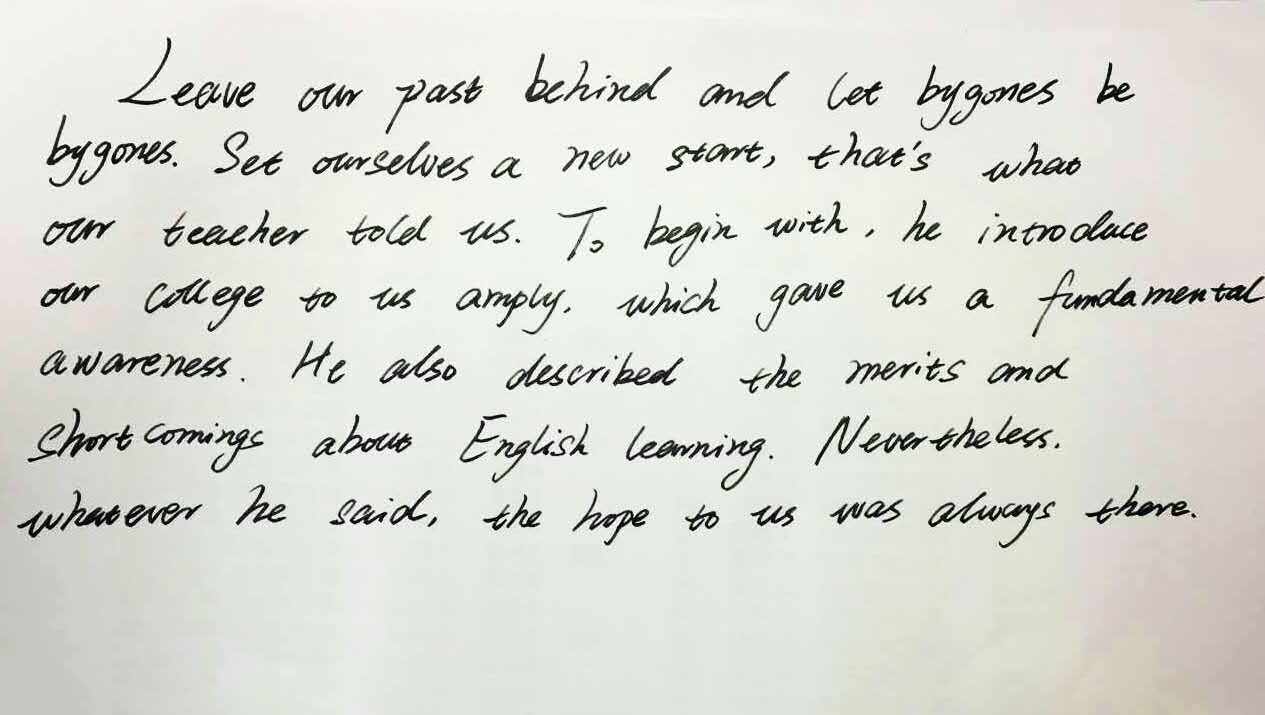 Leave our past behind and let bygones be
bygones. Set ourselves a new start, that's what
our teacher told us. To begin with, he introduce
our college to us amply, which gave us a fundamental
awareness. He also described the merits and
shortcomings about English learning. Nevertheless.
whatever he said, the hope to us was always there.